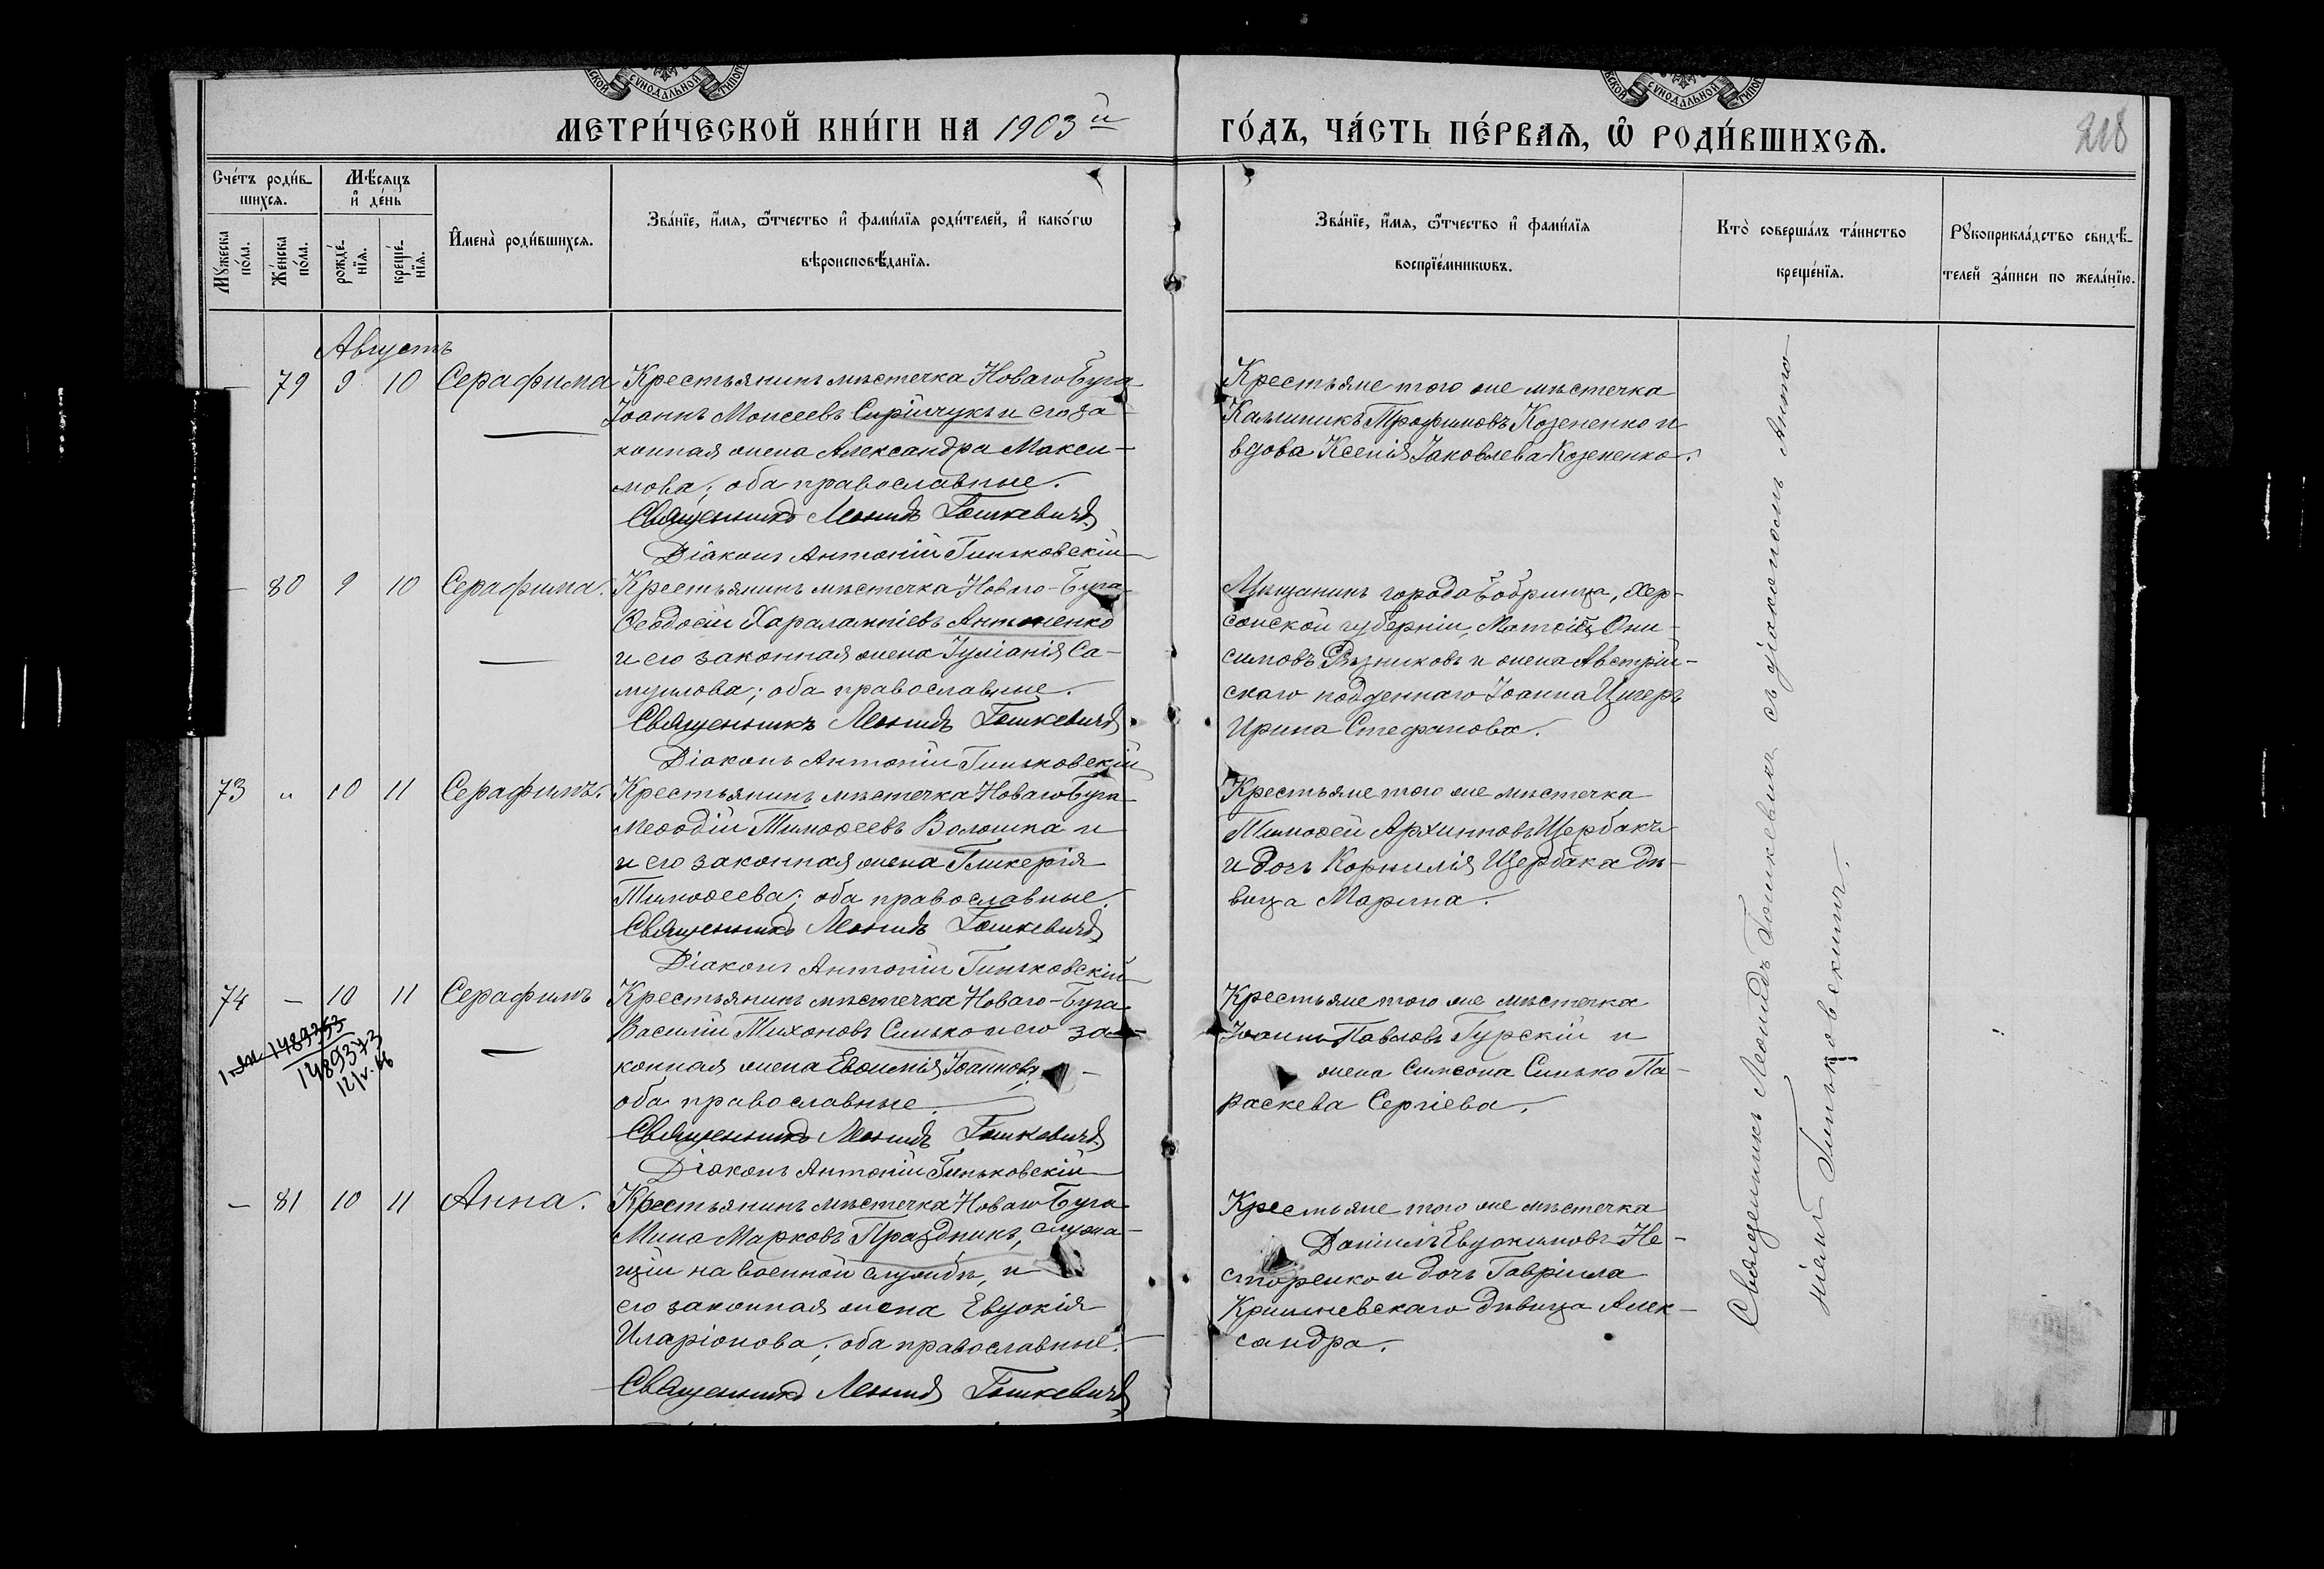 МЕТРИ́ЧЕСКОЙ КНИ́ГИ НА 1903й ГО́ДЪ, ЧА́СТЬ ПЕ́РВАЯ, Ѡ҆ РОДИ́ВШИХСЯ.
218
Сче́тъ роди́в-
шихся.
Мѣ́сяцъ
и҆ де́нь
Мꙋ́жеска
по́ла.
Же́нска
по́ла.
рожде́-
нїя.
креще́-
нїя.
И҆мена̀ роди́вшихся.
Зва́нїе, и҆́мя, ѻ҆́тчество и҆ фами́лїя роди́телей, и҆ како́гѡ
вѣроисповѣ́данїя.
Зва́нїе, и҆́мя, ѻ҆́тчество и҆ фами́лїя
воспрїе́мникѡвъ.
Кто̀ соверша́лъ та́инство
креще́нїя.
Рꙋкоприкла́дство свидѣ́-
телей за́писи по жела́нїю.
Августъ
— 79 9 10 Серафима
Крестьянинъ мѣстечка Новаго Буга
Іоаннъ Моисеевъ Сирiичукъ и его за
конная жена Александра Макси-
мова; оба православные.
Священникъ Леонидъ Гошкевичъ
Діаконъ Антоній Гиньковскій
Крестьяне того же мѣстечка
Каллиникъ Трофимовъ Козененко и
вдова Ксенія Іаковлева Козененко.
— 80 9 10 Серафима.
Крестьянинъ мѣстечка Новаго-Буга
Ѳеодосій Харалампіевъ Антоненко
и его законная жена Іуліанія Са-
муилова; оба православные.
Священникъ Леонидъ Гошкевичъ
Діаконъ Антоній Гиньковскій
Мѣщанинъ города Бобринца, Хер-
сонской губерніи, Матѳій Они-
симовъ Рѣзниковъ и жена Австрій-
скаго подданнаго Іоанна Цигеръ
Ирина Стефанова.
73 „ 10 11 Серафимъ.
Крестьянинъ мѣстечка Новаго Буга
Меѳодій Тимоѳеевъ Волошка и
и его законная жена Гликерія
Тимоѳеева; оба православные.
Священникъ Леонидъ Гошкевичъ
Діаконъ Антоній Гиньковскій
Крестьяне того же мѣстечка
Тимоѳей Архипповъ Щербакъ
и дочь Корнилія Щербака дѣ-
вица Марина.
74 — 10 11 Серафимъ
1489353
1489373
12/V.66
Крестьянинъ мѣстечка Новаго-Буга
Василій Тихоновъ Синько и его за-
конная жена Евѳимія Іоаннова;
оба православные.
Священникъ Леонидъ Гошкевичъ
Діаконъ Антоній Гиньковскій
Крестьяне того же мѣстечка
Іоаннъ Павловъ Гурскій и
жена Симеона Синько Па-
раскева Сергіева.
— 81 10 11 Анна.
Крестьянинъ мѣстечка Новаго Буга
Мина Марковъ Праздникъ, служа-
щій на военной службѣ, и
его законная жена Евдокія
Иларіонова; оба православные.
Священникъ Леонидъ Гошкевичъ
Крестьяне того же мѣстечка
Даніилъ Евдокимовъ Не-
сторенко и дочь Гавріила
Кришневскаго дѣвица Алек-
сандра.
Священникъ Леонидъ Гошкевичъ съ діакономъ Анто-
ніемъ Гиньковскимъ.